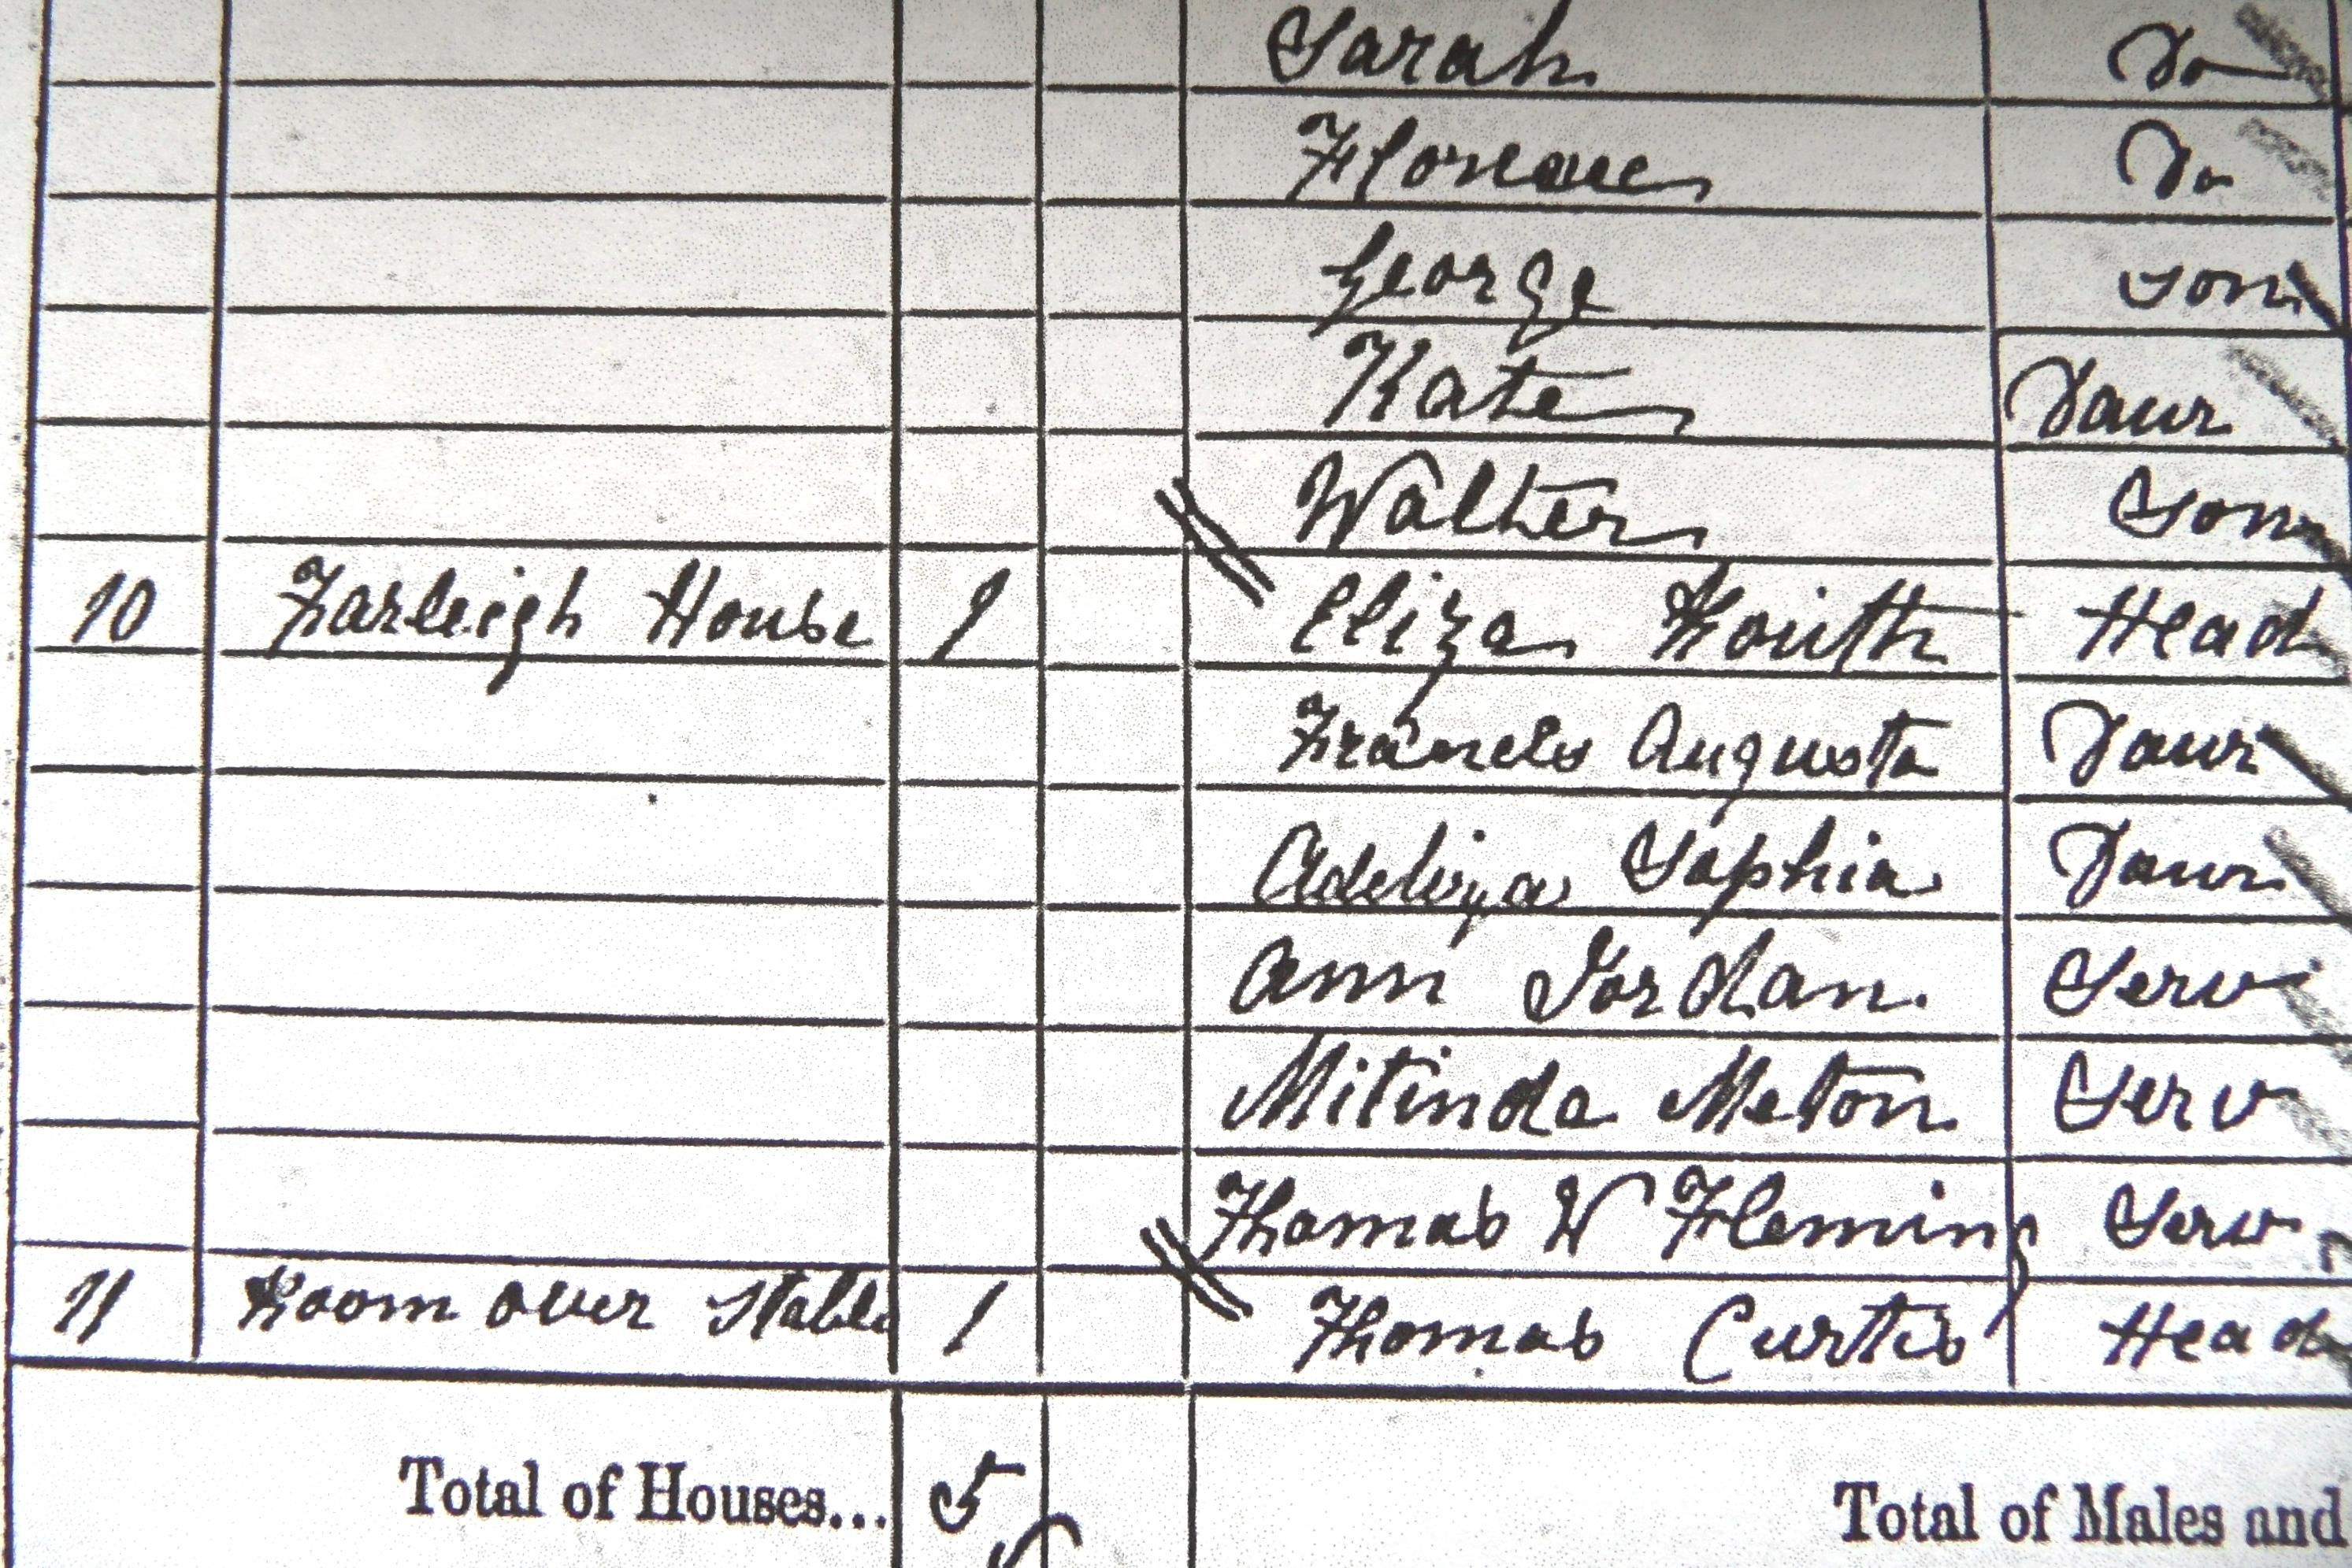 Sarah Do
Florence Do
George Son
Kate Daur
Walter Son
10 Farleigh House 1 Eliza Head
Francis Augusta Daur
Sophia Daur
Ann Jordan. Serv
Mitinda Meton Serv
Thomas W Fleming Serv
11 Room over Stable 1 Thomas Curtis Head
Total of Houses... 5 Total of Males and